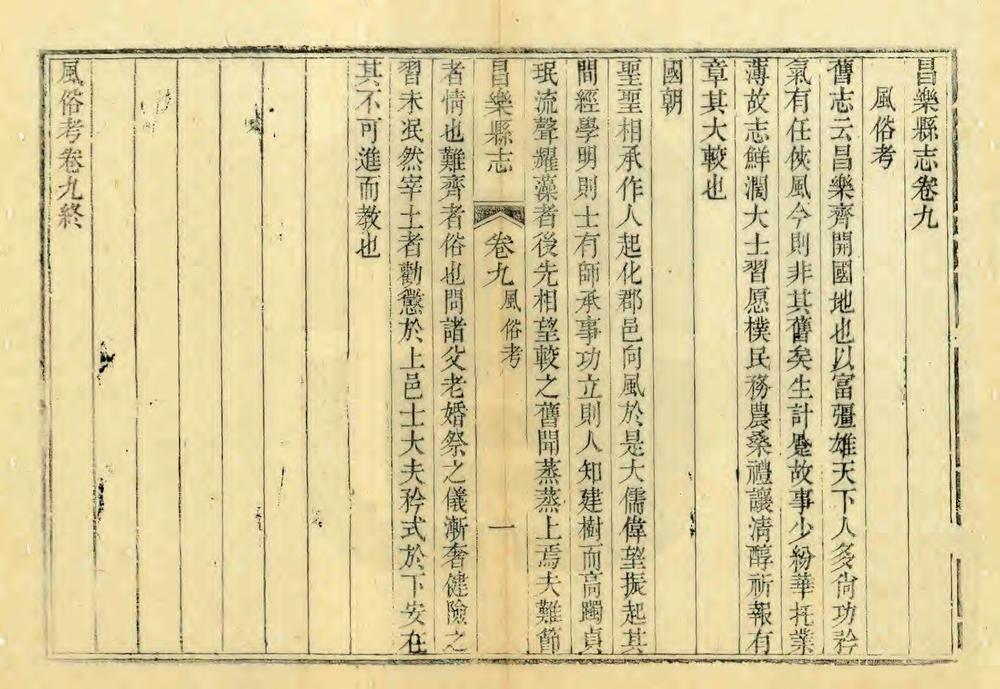 昌樂縣志卷九
風俗考
舊志云昌樂齊開國地也以富彊雄天下人多尙功矜
氣有任俠風今則非其舊矣生計蹙故事少紛華托業
薄故志鮮濶大士習愿樸民務農桑禮讓淸醇祈報有
章其大較也
國朝
聖聖相承作人起化郡邑向風於是大儒偉望振起其
間經學明則士有師承事功立則人知建樹而高躅貞
珉流聲耀藻者後先相望較之舊聞蒸蒸上焉夫難節
昌樂縣志
卷九
風俗考
一
者情也難齊者俗也問諸父老婚祭之儀漸奢健險之
習未泯然宰土者勸懲於上邑士大夫矜式於下安在
其不可進而教也
風俗考卷九終